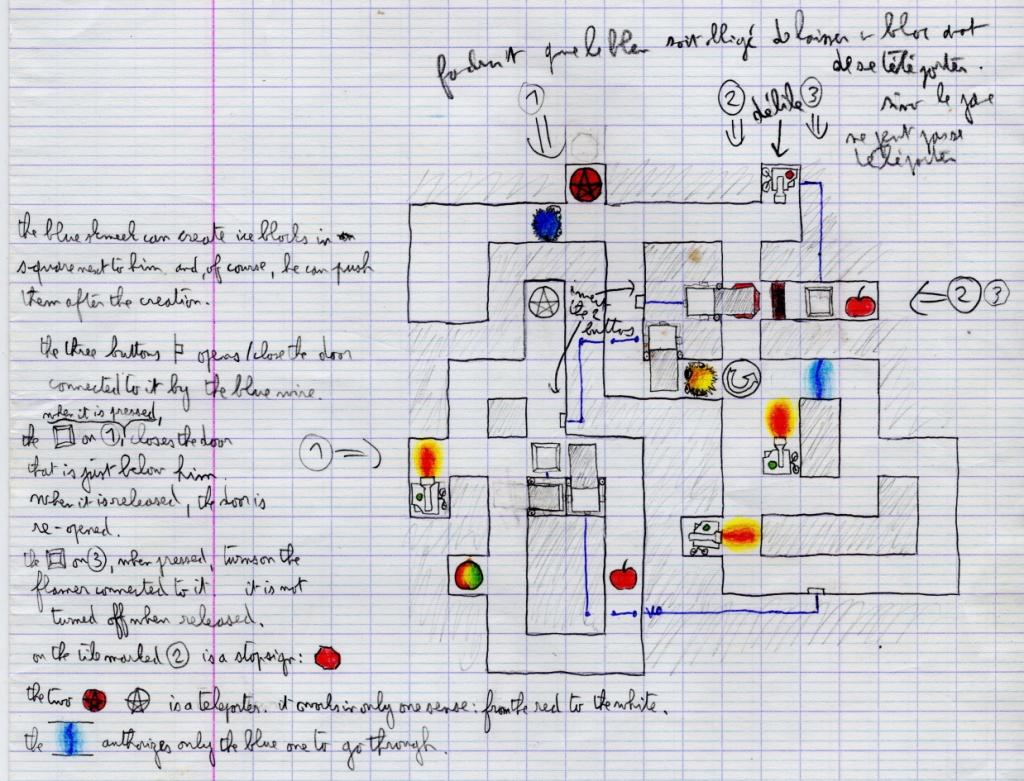 faudrait que le bleu soit obligé de laisser un bloc avant
de se téléporter.
sinon le jaune
ne peut pas se
téléporter
1
2
3
the blue smeel can create ice blocks in
square next to him and, of course, he can push
them after the creation.
the three buttons opens/close the door
connected to it by the blue wire.
when it is pressed,
the on 1, closes the door
that is just below him
when it is released, the door is
re-opened.
the on 3, when pressed, turns on the
flamer connected to it it is not
turned off when released.
on the tile marked 2 is a stopsign:
the two is a teleporter. it works in only one sense: from the red to the white.
the authorizes only the blue one to go through.
the 2
buttons
2 3
1